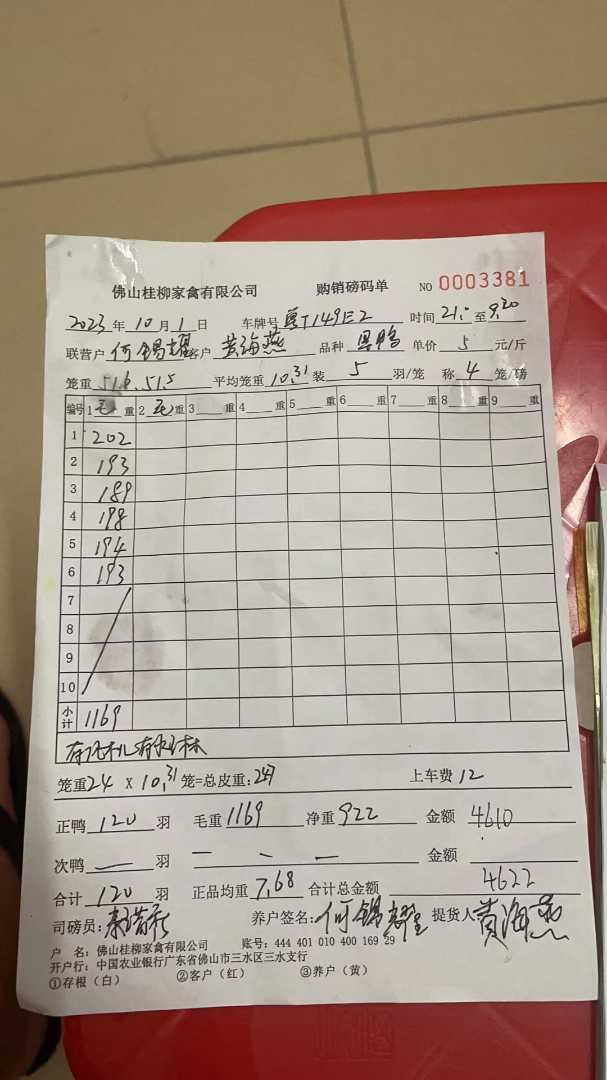 佛山桂柳家禽有限公司 购销磅码单 NO 0003381
2023年10月1日 车牌号 粤T149E2 时间 21:- 至 9:20
联营户 何锡耀 客户 黄海燕 品种 黑鸭 单价 5 元/斤
笼重 51.6.51.5 平均笼重 10.31 装 5 羽/笼 称 4 笼/磅
编号 1 毛 重 2 毛 重 3 重 4 重 5 重 6 重 7 重 8 重 9 重
1 202
2 193
3 189
4 198
5 194
6 193
7
8
9
10
小计 1169
笼重24 X 10.31 笼=总皮重:247 上车费 12
正鸭 120 羽 毛重 1169 净重 922 金额 4610
次鸭 — 羽 — — — 金额
合计 120 羽 正品均重 7.68 合计总金额 4622
司磅员: 养户签名: 何锡耀 提货人 黄海燕
户 名: 佛山桂柳家禽有限公司 账号: 444 401 010 400 169 29
开户行: 中国农业银行广东省佛山市三水区三水支行
①存根（白） ②客户（红） ③养户（黄）